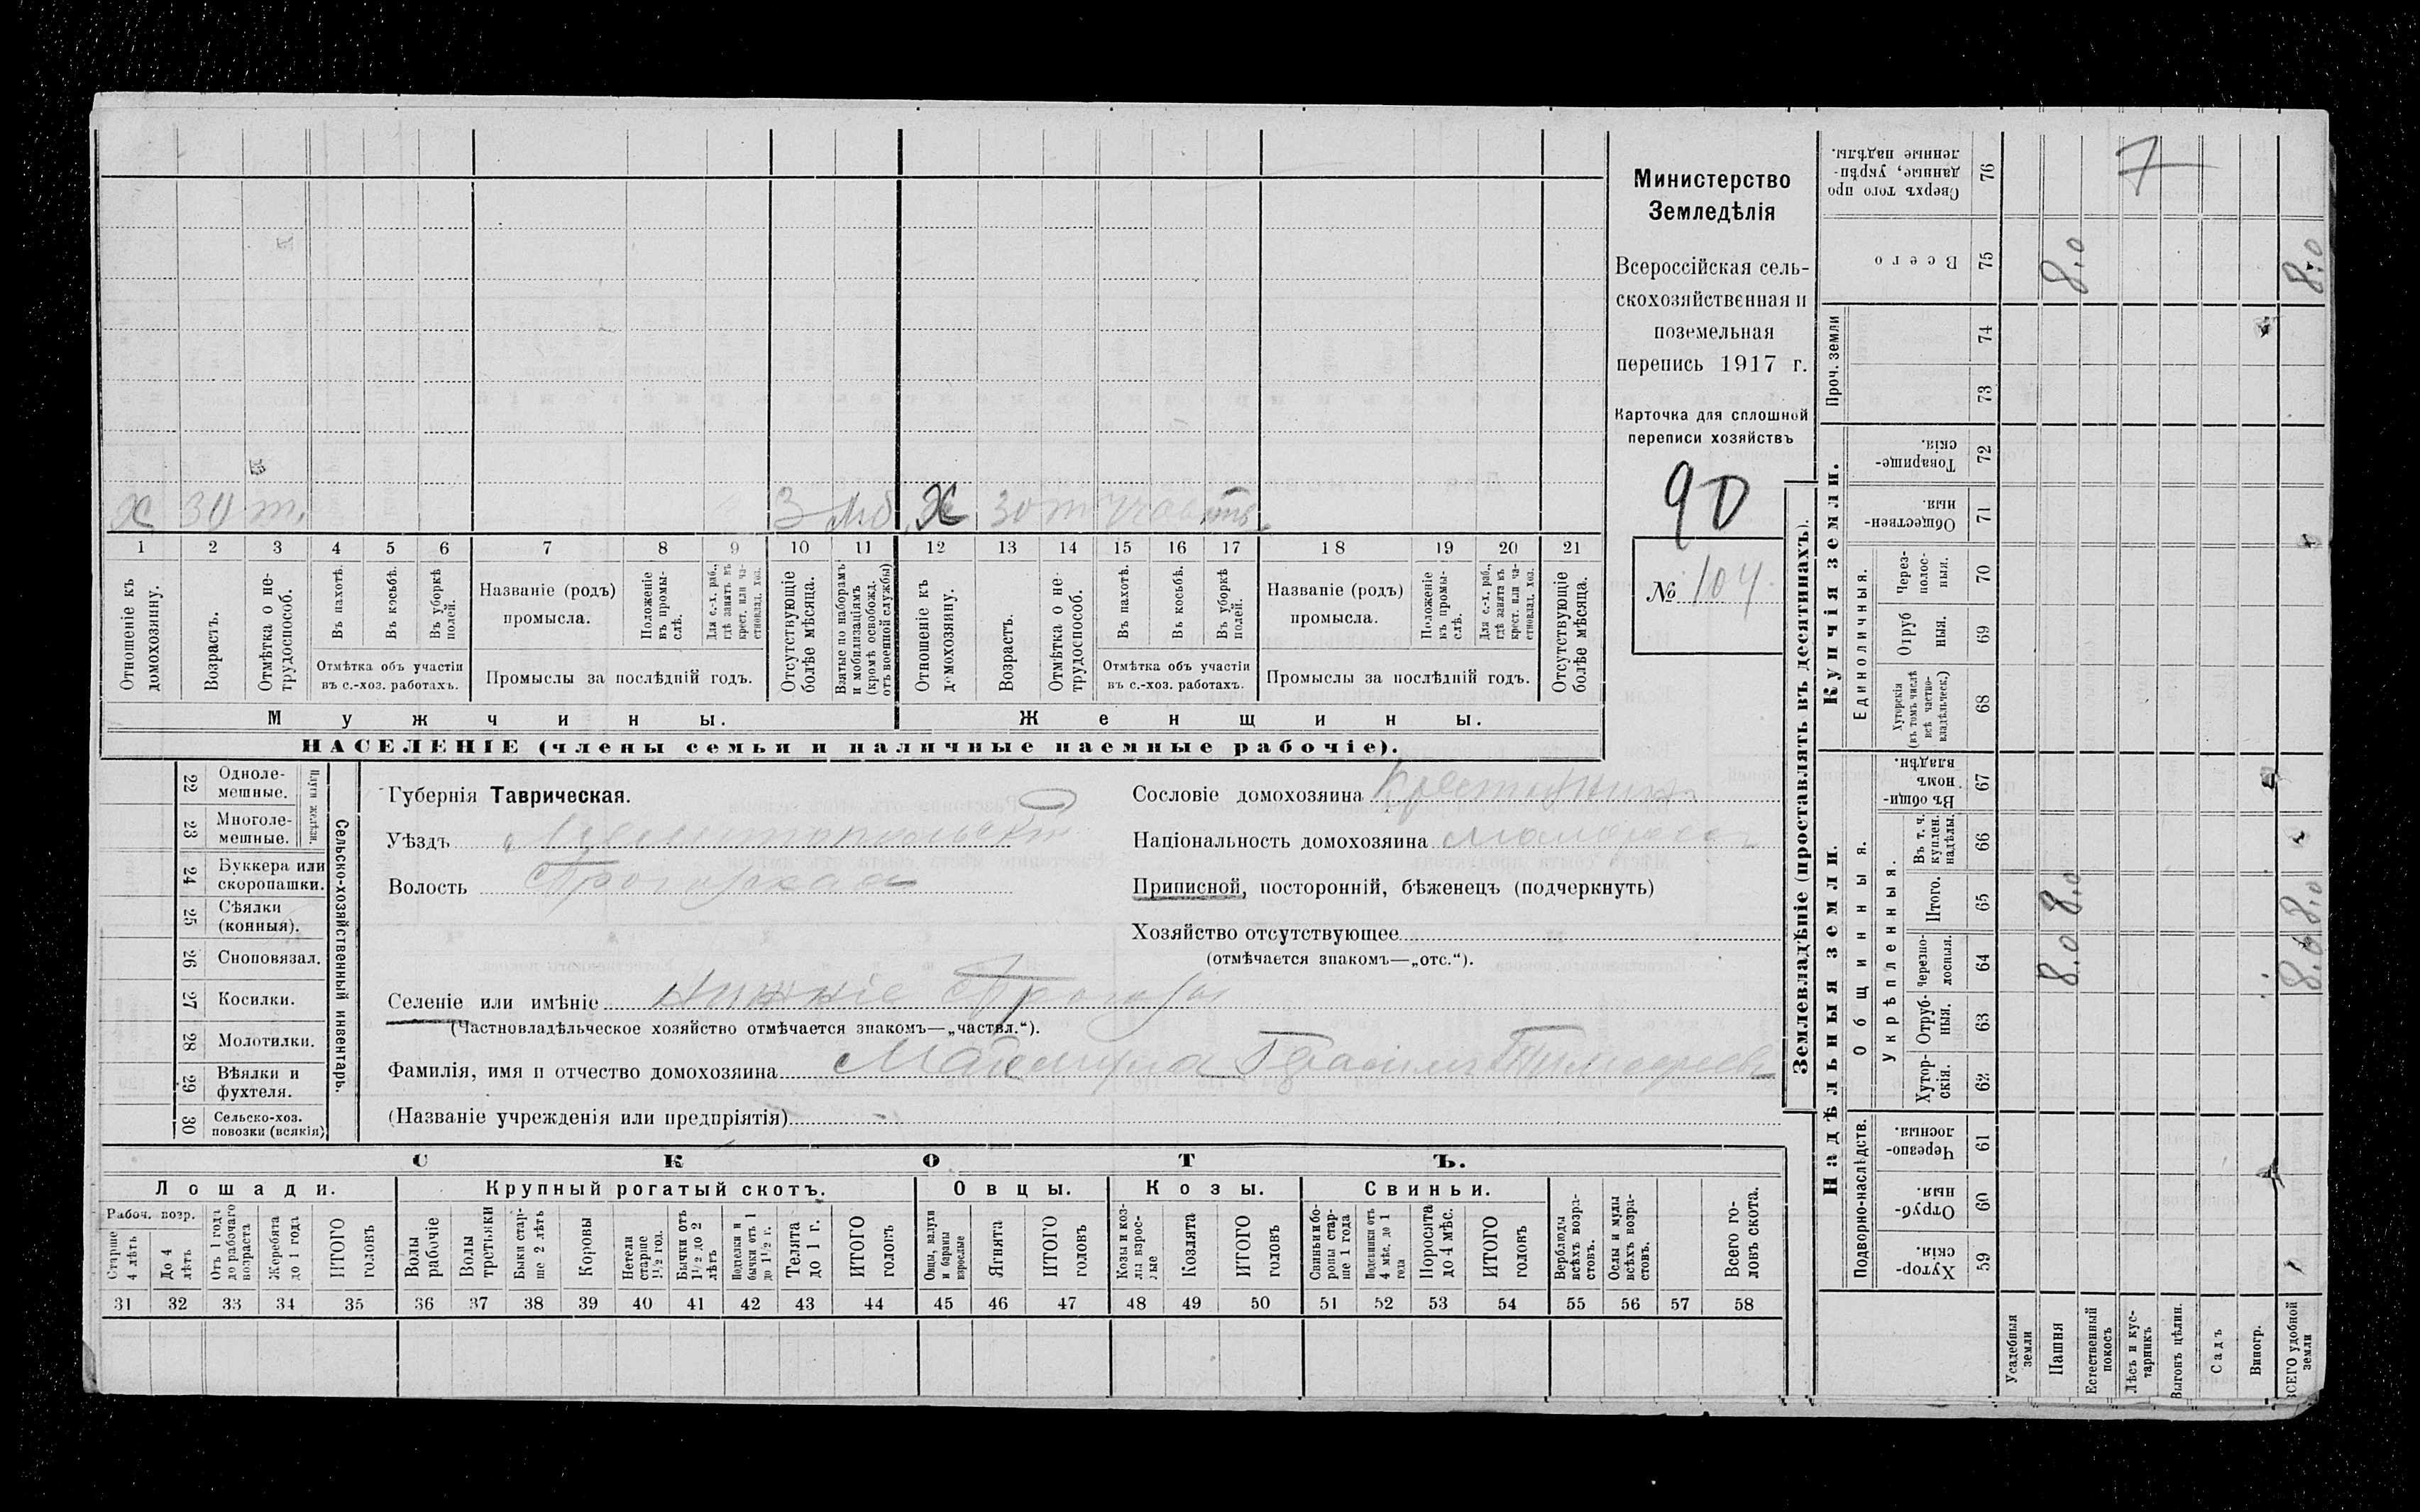 Министерство
Земледѣлія
Всероссійская сель-
скохозяйственная и
поземельная
перепись 1917 г.
Карточка для сплошной
переписи хозяйствъ
90
№ 104
х 30 т. 3 Мб. Х 30 т
1 2 3 4 5 6 7 8 9 10 11 12 13 14 15 16 17 18 19 20 21
Отношеніе къ домохозяину.
Возрастъ.
Отмѣтка о не-трудоспособ.
Въ пахотѣ.
Въ косьбѣ.
Въ уборкѣ полей.
Отмѣтка объ участіи
въ с.-хоз. работахъ.
Названіе (родъ)
промысла.
Положеніе въ промы-слѣ.
Для с.-х. раб., гдѣ занятъ въ крест. или ча-стновлад. хоз.
Промыслы за послѣдній годъ.
Отсутствующіе болѣе мѣсяца.
Взятые по наборамъ и мобилизаціямъ (кромѣ освобожд. отъ военной службы)
Отношеніе къ домохозяину.
Возрастъ.
Отмѣтка о не-трудоспособ.
Въ пахотѣ.
Въ косьбѣ.
Въ уборкѣ полей.
Отмѣтка объ участіи
въ с.-хоз. работахъ.
Названіе (родъ)
промысла.
Положеніе въ промы-слѣ.
Для с.-х. раб., гдѣ занята въ крест. или ча-стновлад. хоз.
Промыслы за послѣдній годъ.
Отсутствующіе болѣе мѣсяца.
Мужчины.
Женщины.
НАСЕЛЕНІЕ (члены семьи и наличные наемные рабочіе).
Сельско-хозяйственный инвентарь.
Плуги желѣзн.
22 Одноле-
мешные.
23 Многоле-
мешные.
24 Буккера или
скоропашки.
25 Сѣялки
(конныя).
26 Сноповязал.
27 Косилки.
28 Молотилки.
29 Вѣялки и
фухтеля.
30 Сельско-хоз.
повозки (всякія)
Губернія Таврическая.
Уѣздъ Мелитопольскій
Волость
Селеніе или имѣніе Нижніе
(Частновладѣльческое хозяйство отмѣчается знакомъ—„частвл.“).
Фамилія, имя и отчество домохозяина
(Названіе учрежденія или предпріятія)
Сословіе домохозяина Крестьянинъ
Національность домохозяина Малороссъ
Приписной, посторонній, бѣженецъ (подчеркнуть)
Хозяйство отсутствующее
(отмѣчается знакомъ—„отс.“).
СКОТЪ.
Лошади.
Рабоч. возр.
Старше 4 лѣтъ
До 4 лѣтъ
Отъ 1 года до рабочаго возраста
Жеребята до 1 года
ИТОГО головъ
Крупный рогатый скотъ.
Волы рабочіе
Волы третьяки
Быки стар-ше 2 лѣтъ
Коровы
Нетели старше 1½ год.
Бычки отъ 1½ до 2 лѣтъ
Подтелки и бычки отъ 1 до 1½ г.
Телята до 1 г.
ИТОГО головъ
Овцы.
Овцы, валухи и бараны взрослые
Ягнята
ИТОГО головъ
Козы.
Козы и коз-лы взрос-лые
Козлята
ИТОГО головъ
Свиньи.
Свиньи и бо-ровы стар-ше 1 года
Подсвинки отъ 4 мѣс. до 1 года
Поросята до 4 мѣс.
ИТОГО головъ
Верблюды всѣхъ возра-стовъ.
Ослы и мулы всѣхъ возра-стовъ.
Всего го-ловъ скота.
31 32 33 34 35 36 37 38 39 40 41 42 43 44 45 46 47 48 49 50 51 52 53 54 55 56 57 58
Землевладѣніе (проставлять въ десятинахъ).
Надѣльныя земли.
Подворно-наслѣдств.
59 Хутор-скія.
60 Отруб-ныя.
61 Черезпо-лосныя.
Общинныя.
Укрѣпленныя.
62 Хутор-скія.
63 Отруб-ныя.
64 черезпо-лосныя. 8.0 8.0
65 Итого. 8.0 8.0
66 Въ т. ч. куплен. надѣлы.
67 Въ общи-номъ владѣн.
Купчія земли.
Единоличныя.
68 Хуторскія (въ томъ числѣ всѣ частно-владѣльческ.)
69 Отрубныя.
70 Через-полос-ныя.
71 Обществен-ныя.
72 Товарище-скія.
Проч. земли
73
74
75 Всего 8.0 8.0
76 Сверхъ того про-данные, укрѣп-ленные надѣлы. 7
Усадебныя земли
Пашня
Естественный покосъ
Лѣсъ и кус-тарникъ
Выгонъ цѣлин.
Садъ
Виногр.
ВСЕГО удобной земли